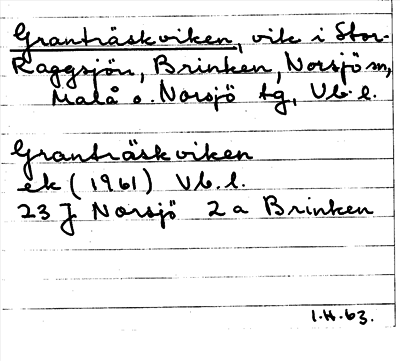 Granträskviken, vik i Stor-
Raggsjön, Brinken, Norsjö sn,
Malå o. Norsjö tg, Vb. l.
Granträskviken
ek (1961) Vb. l.
23 J Norsjö 2 a Brinken
I.H.63.